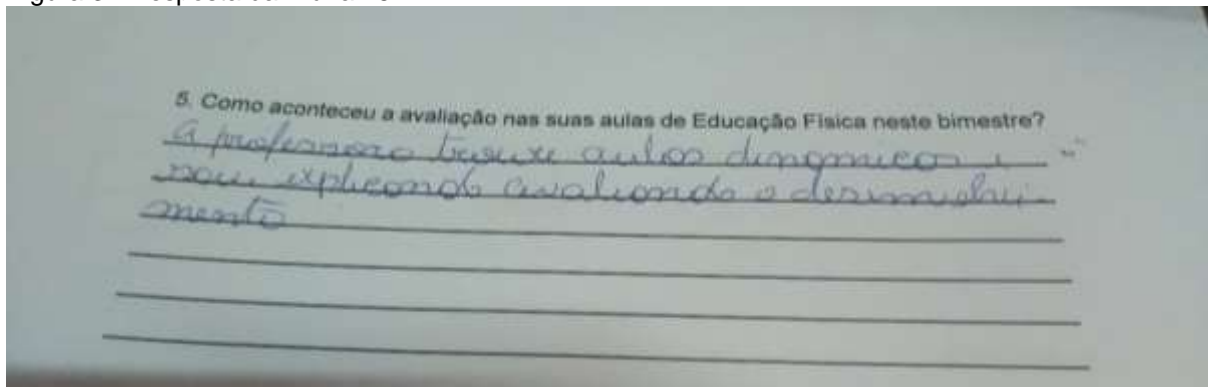 5. Como aconteceu a avaliação nas suas aulas de Educação Física neste bimestre?
A professora trouxe aulas dinamicas
explicando avaliando o desinvolvi-
mento